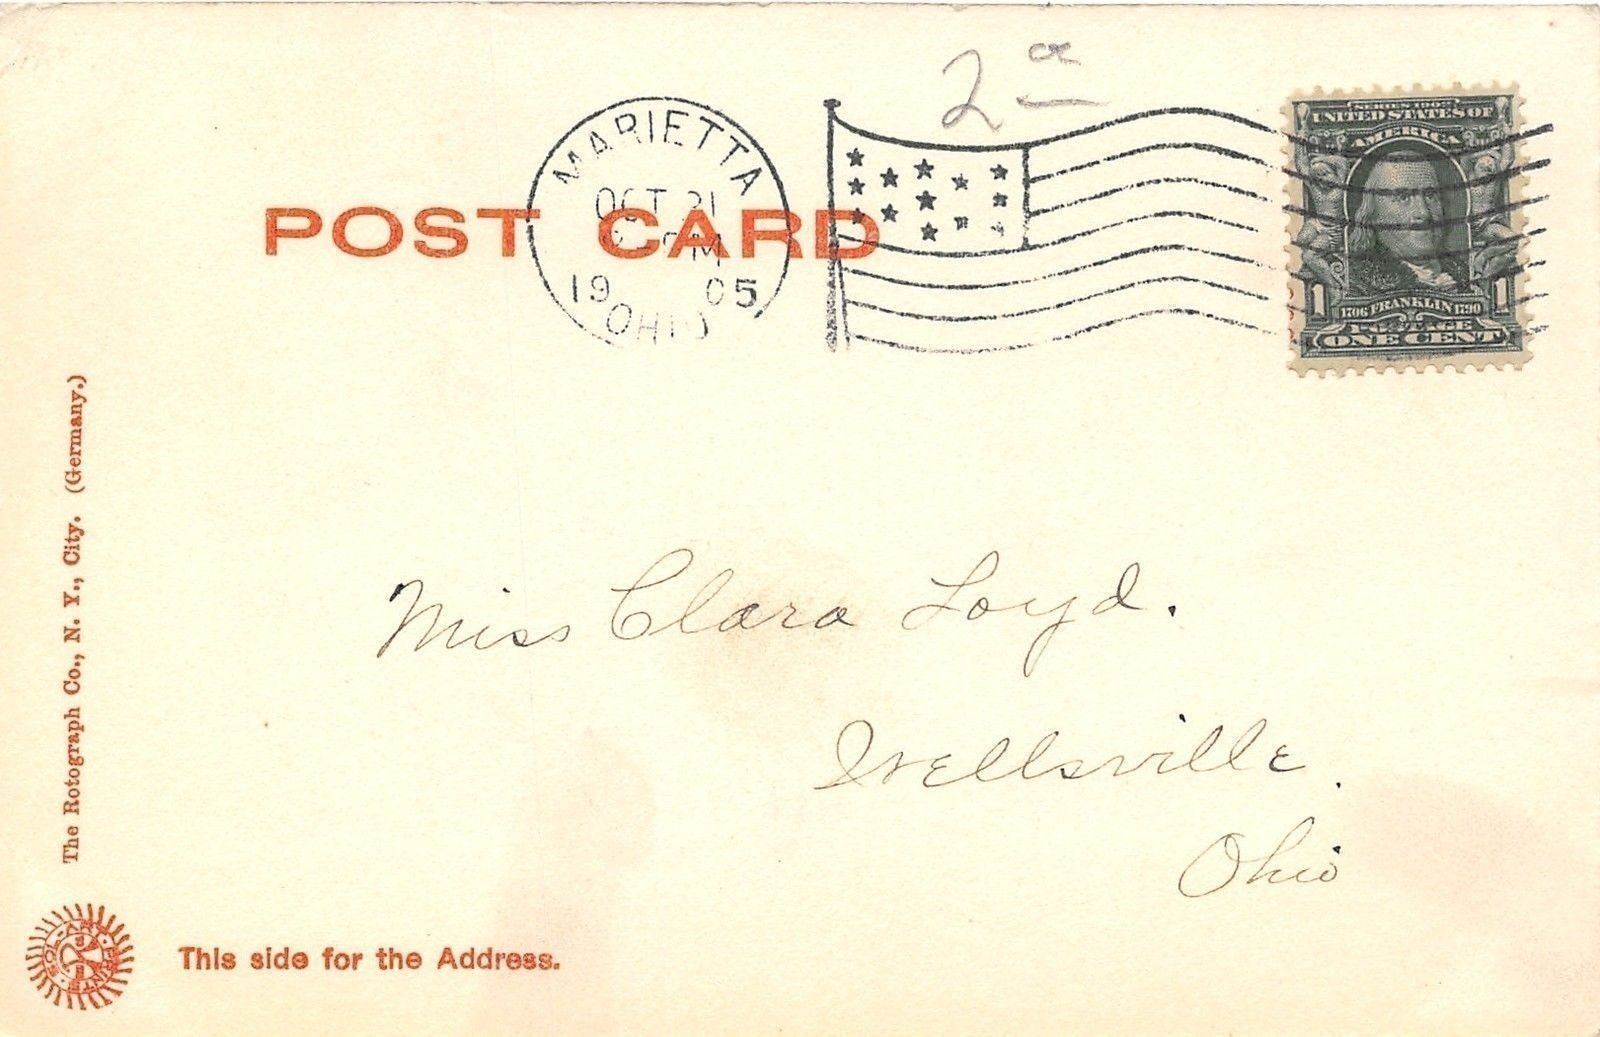 2 a
MARIETTA
OCT 21
M
1905
OHIO
POST CARD
SERIES 1902
UNITED STATES OF
AMERICA
1706 FRANKLIN 1790
1 1
POSTAGE
ONE CENT
The Rotograph Co., N. Y., City. (Germany.)
Miss Clara Loyd.
Wellsville.
Ohio
SOL-ART PRINTS
This side for the Address.